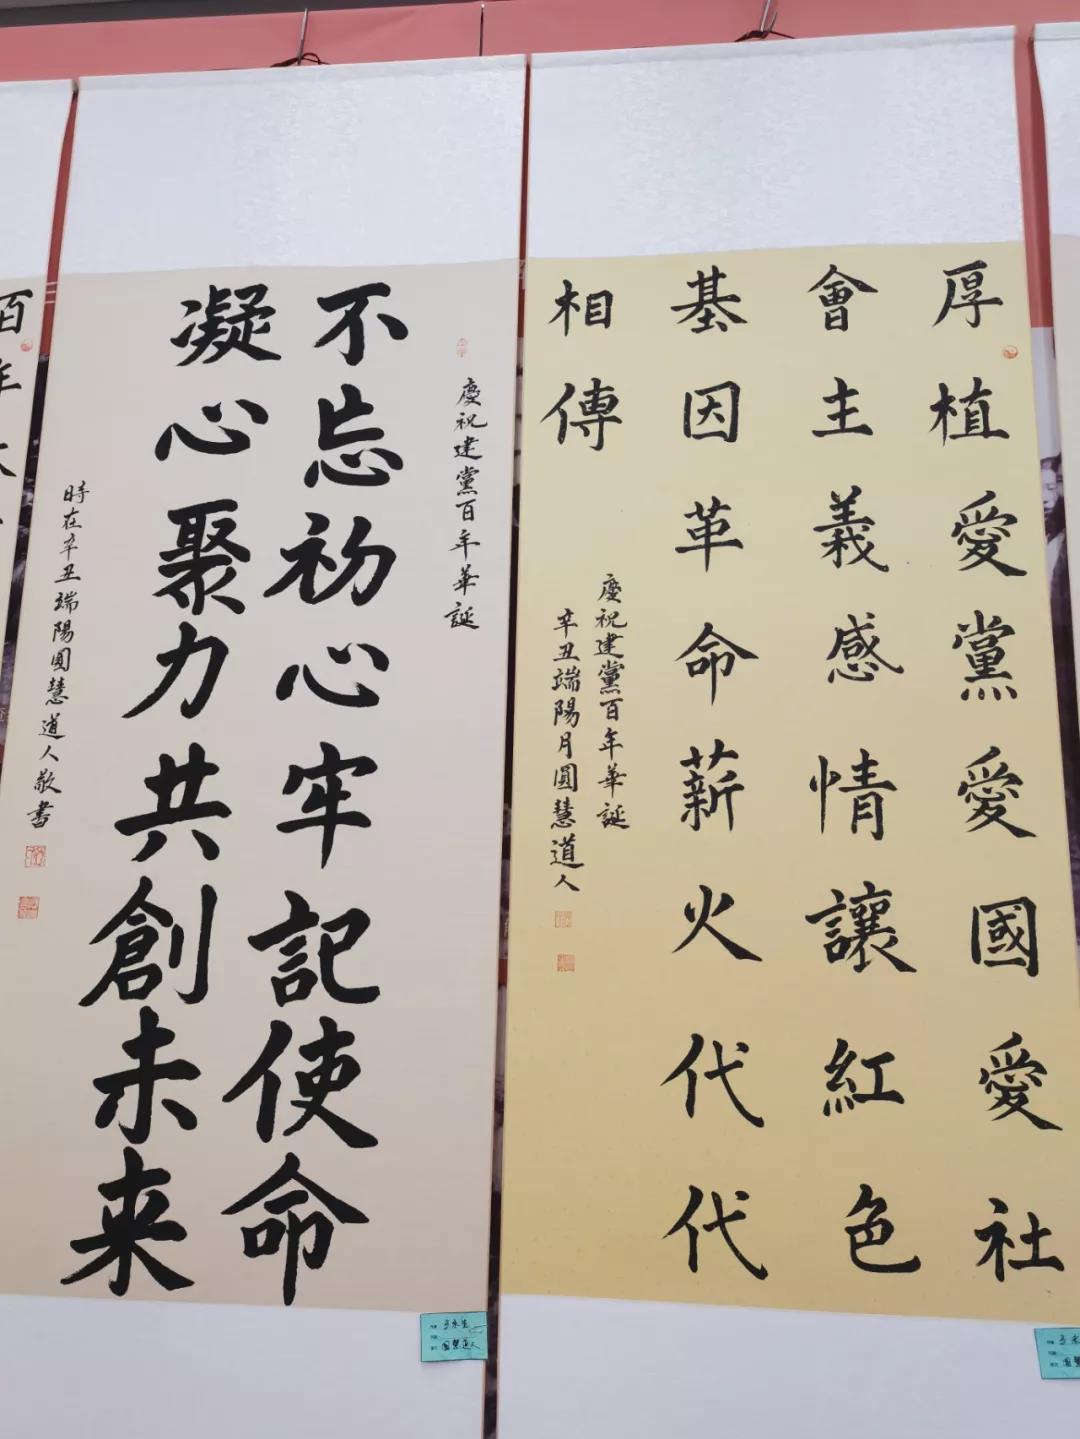 厚植愛黨愛國愛社
會主義感情讓紅色
基因革命薪火代代
相傳
慶祝建黨百年華誕
辛丑端陽月圓慧道人
慶祝建黨百年華誕
不忘初心牢記使命
凝心聚力共創未来
時在辛丑端陽圓慧道人敬書
百年
圓慧道人